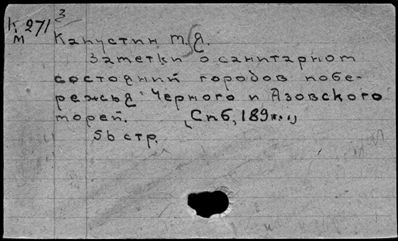 К 271 3
М
Капустин М.Я.
Заметки о санитарном
состояний городов побе-
режья Черного и Азовского
морей. [Спб, 189
56 стр.